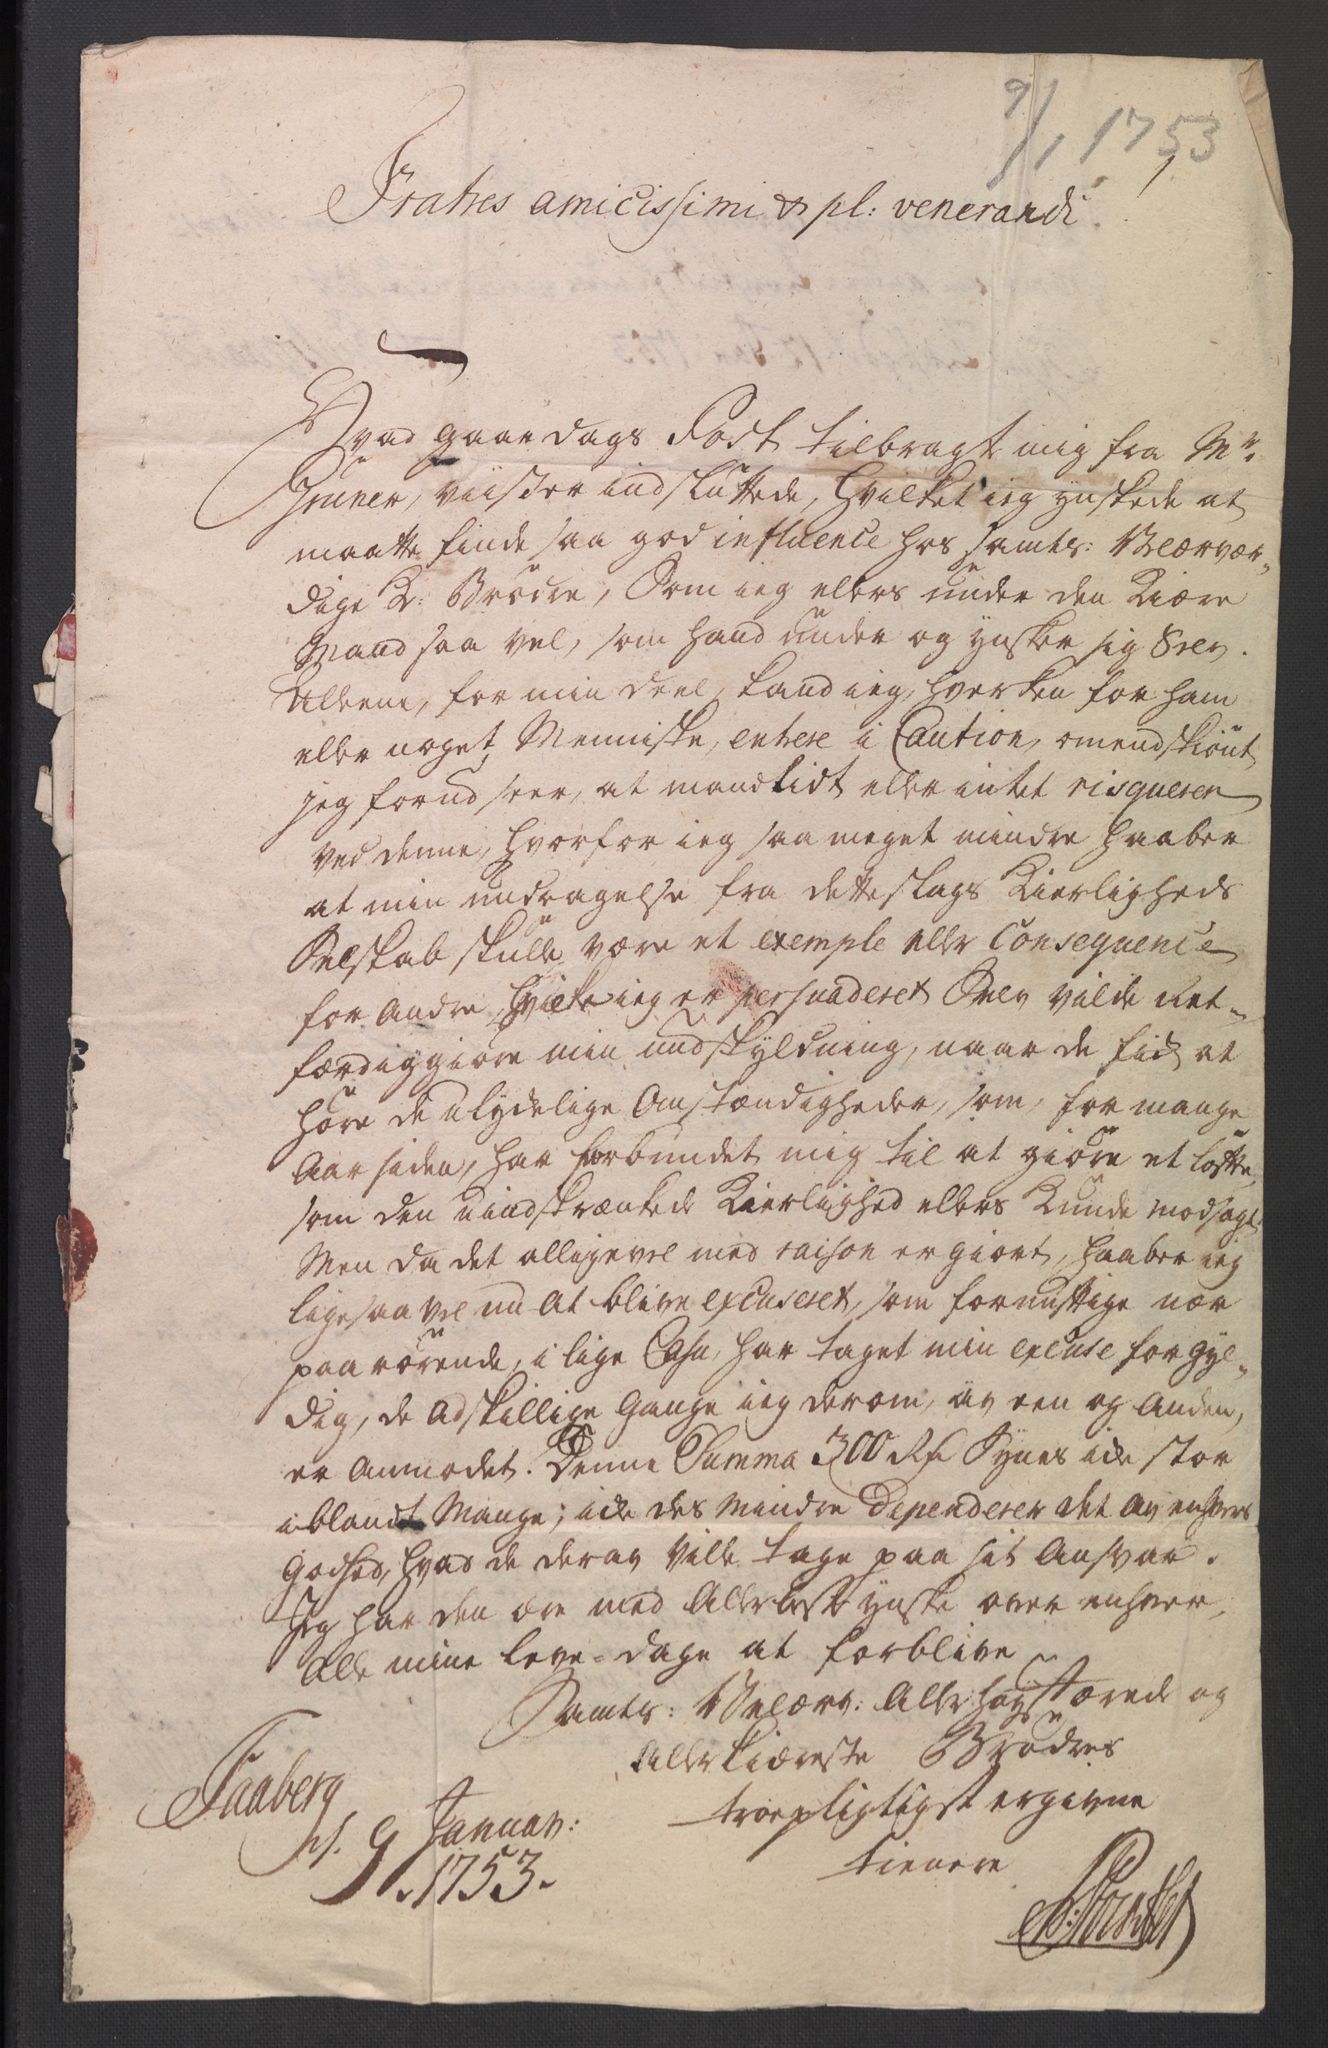 9/1 1753
Fratres amicissimi & pl: venerandi
Hvad gaardags Post tilbragt mig fra Mr.
Gruner, viiser indsluttede, hvilket ieg ynskede at
maatte finde saa god influence hos samtl: Velærvær-
dige K: Brødre, Som ieg ellers under den Kiære
Mand saa vel, som hand under og ynsker sig Selv.
Allene, for min deel, kand ieg, hverken for ham
eller noget Menniske, entrere i Caution, omendskiønt
jeg forud seer, at mand lidt eller intet risquerer
ved denne, hvorfor ieg saa meget mindre haaber
at min undragelse fra dette slags Kierligheds
Selskab skulle være et exemple eller Consequence
for Andre, hvilke ieg er persuaderet Selv vilde Ret-
færdiggiøre min undskyldning, naar de fick at
høre de ulydelige Omstændigheder, som, for mange
Aar siden, har forbundet mig til at giøre et løfte,
som den uindskrænkede Kierlighed ellers Kunde modsagt.
Men da det alligevel med raison er giort, haaber ieg
ligesaa vel nu at blive excuseret, som fornufftige nær
paarørende, i lige Casu, har taget min excuse for gyl-
dig, de adskillige Gange ieg derom, av een og Anden,
er Anmodet. Denne Summa 300 Rd Synes icke stor
iblandt Mange; icke des mindre dependerer det av enhvers
Godhed, hvad de derav ville tage paa sit Ansvar.
Jeg har den ære med Allerbeste ynske over enhver,
Alle mine leve-dage at forblive
Samtl: Velærv: Allerhøystærede og
Allerkiæreste Brødres
troepligtigst ergivne
tienere
Faaberg
d. 9 Januar:
1753.